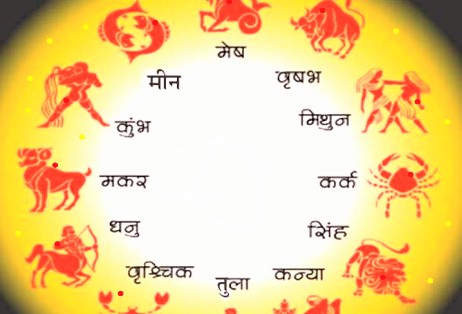 मेष
वृषभ
मिथुन
कर्क
सिंह
कन्या
तुला
वृश्चिक
धनु
मकर
कुंभ
मीन